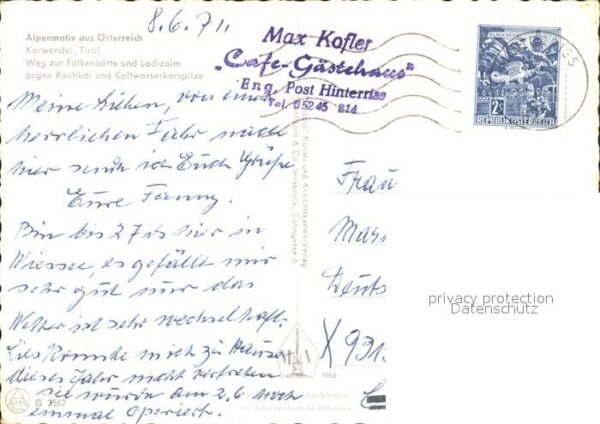 8.6.71
Alpenmotiv aus Österreich
Karwendel, Tirol
Weg zur Falkenhütte und Ladizalm
gegen Rauhkar und Kaltwasserkarspitze
Max Kofler
„Cafe-Gästehaus"
Eng, Post Hinterriss
Tel. 05245 214
2S
REPUBLIK ÖSTERREICH
Meine Lieben, von einer
herrlichen Fahr nach
hier sende ich Euch Grüße
Eure Fanny.
Bin bis 27 ds hier in
Wiessee, es gefällt mir
sehr gut nur das
Wetter ist sehr wechselhaft.
Lies konnte mich zu Hause
dieses Jahr nicht vertreten
sie wurde am 2.6 noch
einmal operiert.
Frau
Mar
Deuts
X 931
privacy protection
Datenschutz
1968
G 2562